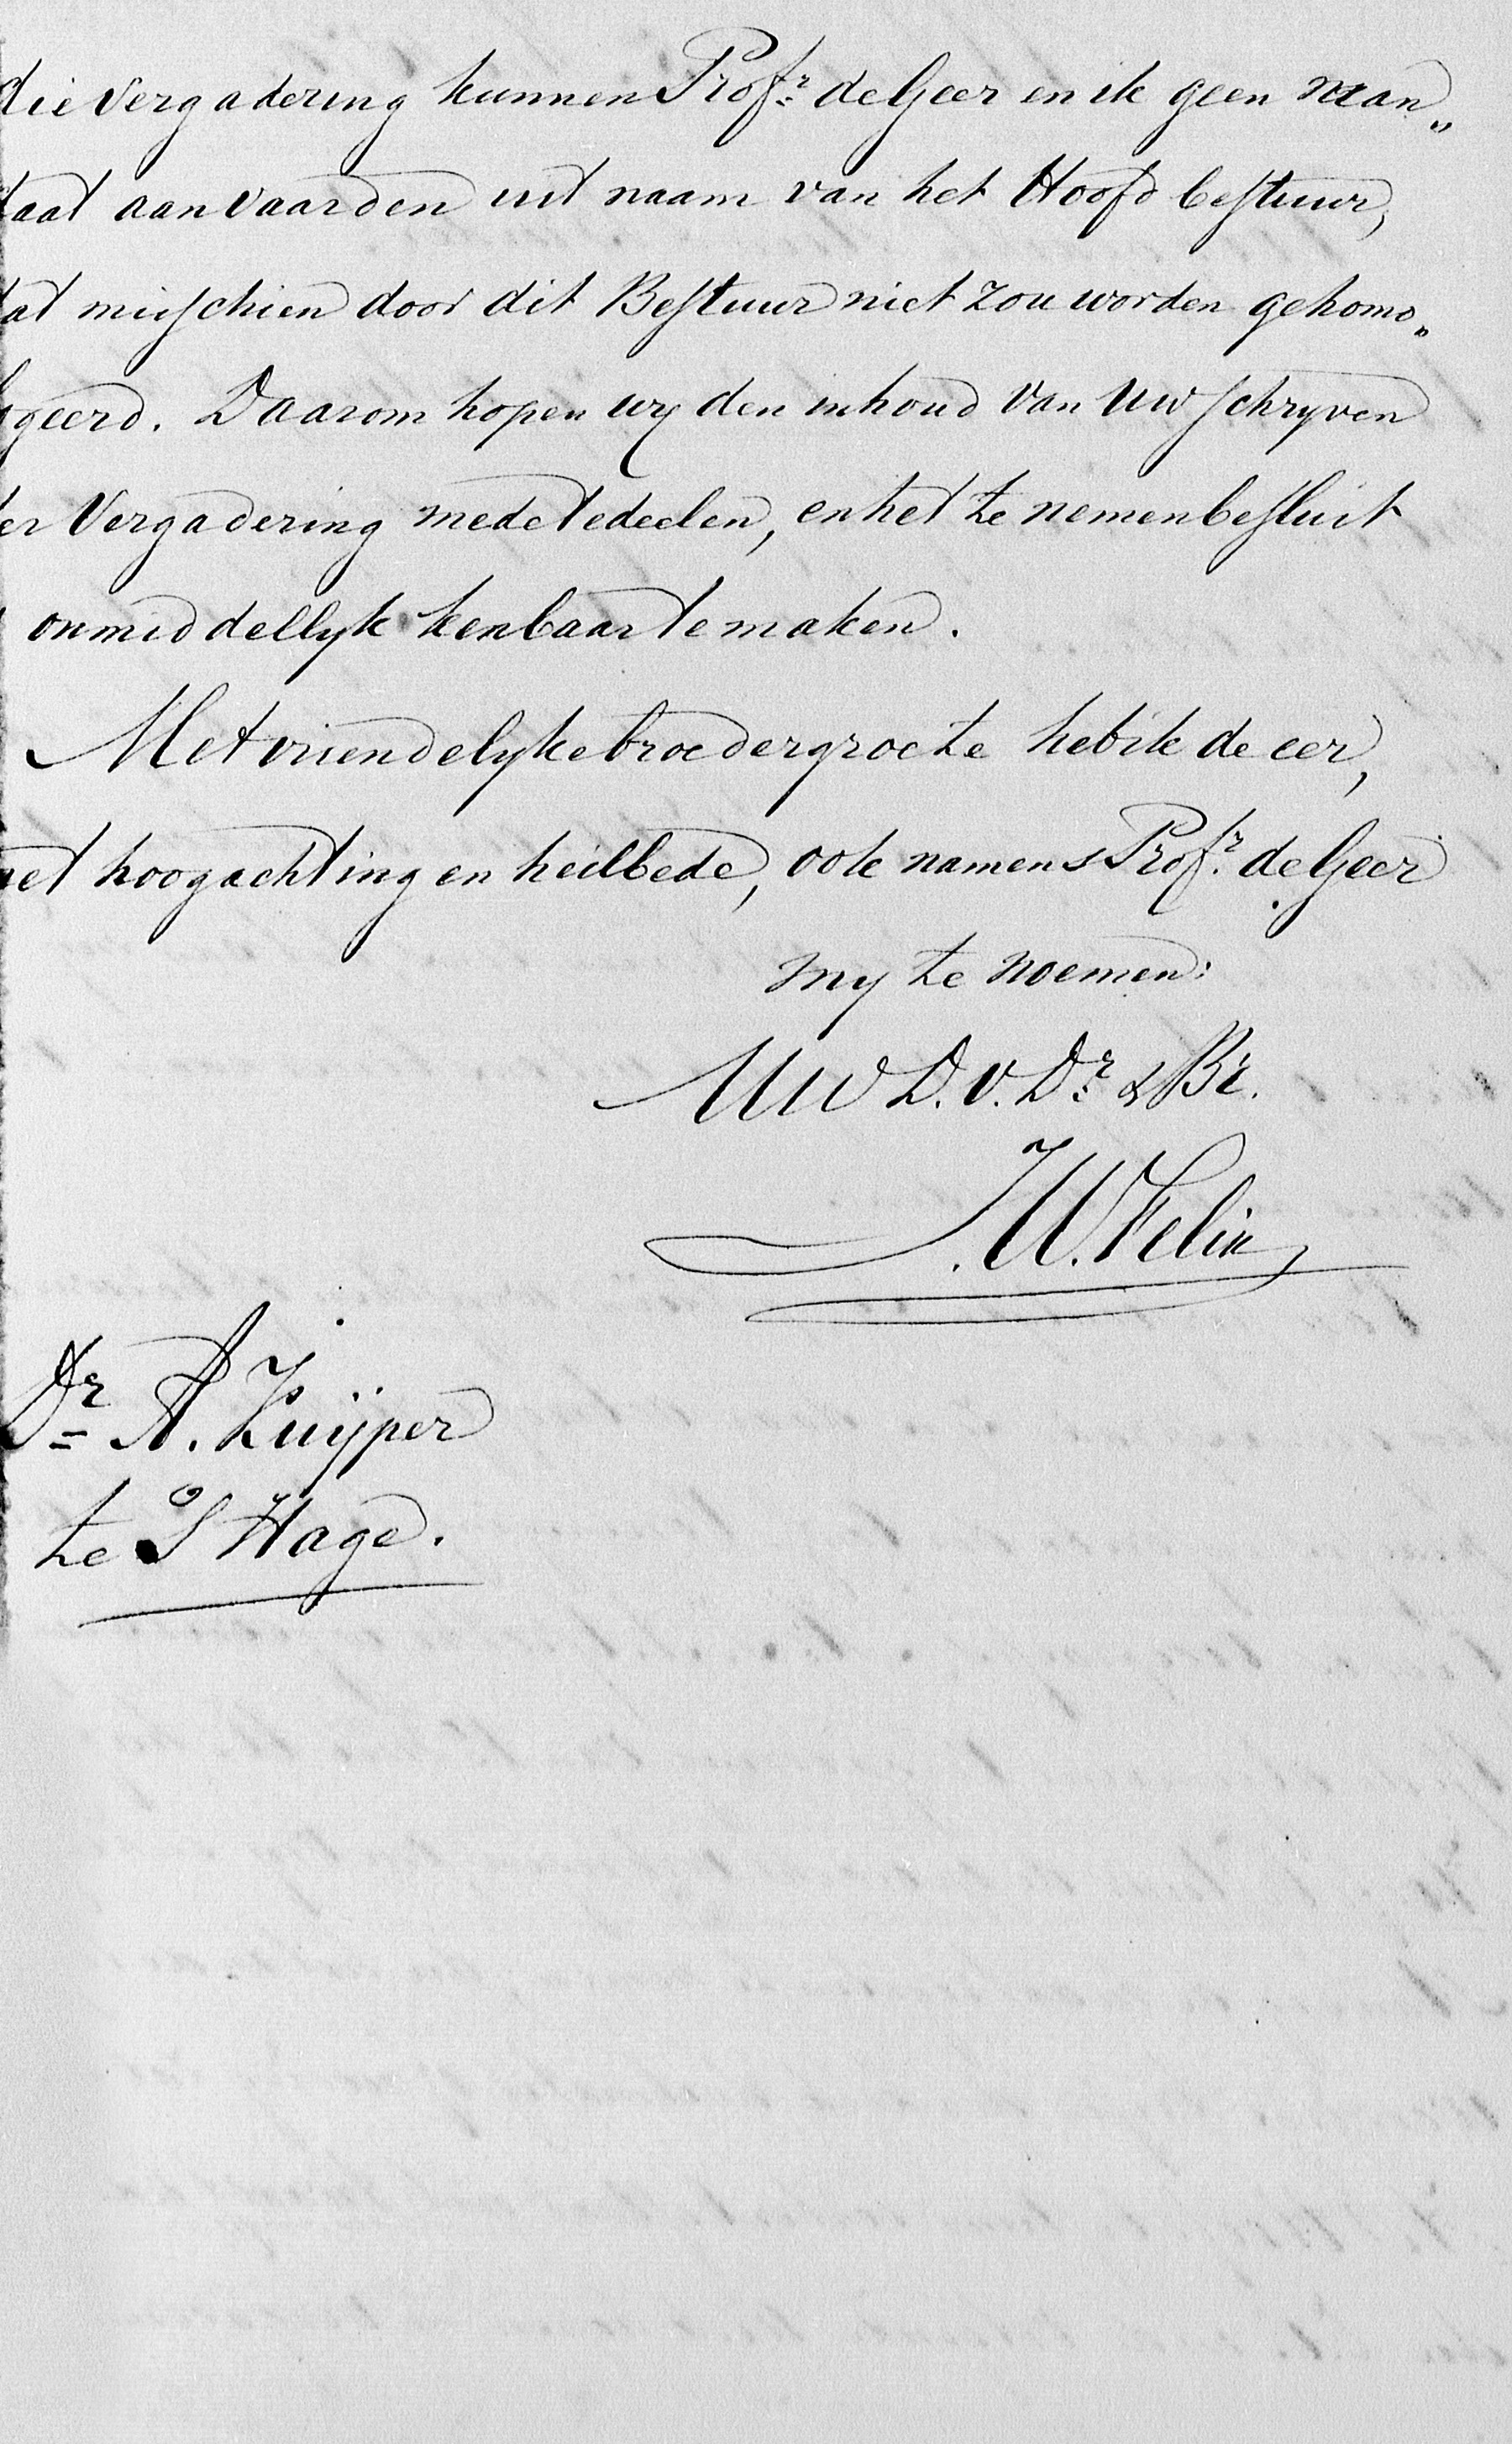 die vergadering kunnen Profr. de Geer en ik geen man„
taat aanvaarden uit naam van het Hoofdbestuur,
dat misschien door dit Bestuur niet zou worden gehomo„
logeerd. Daarom hopen wy den inhoud van Uw schryven
der Vergadering mede te deelen, en het te nemen besluit
onmiddellyk kenbaar te maken.
Met vriendelyke broedergroete heb ik de eer,
met hoogachting en heilbede, ook namens Profr. de Geer
my te noemen:
Uw D. v. Dr. & Br.
J. W. Felix
Dr. A. Kuijper
te 's Hage.